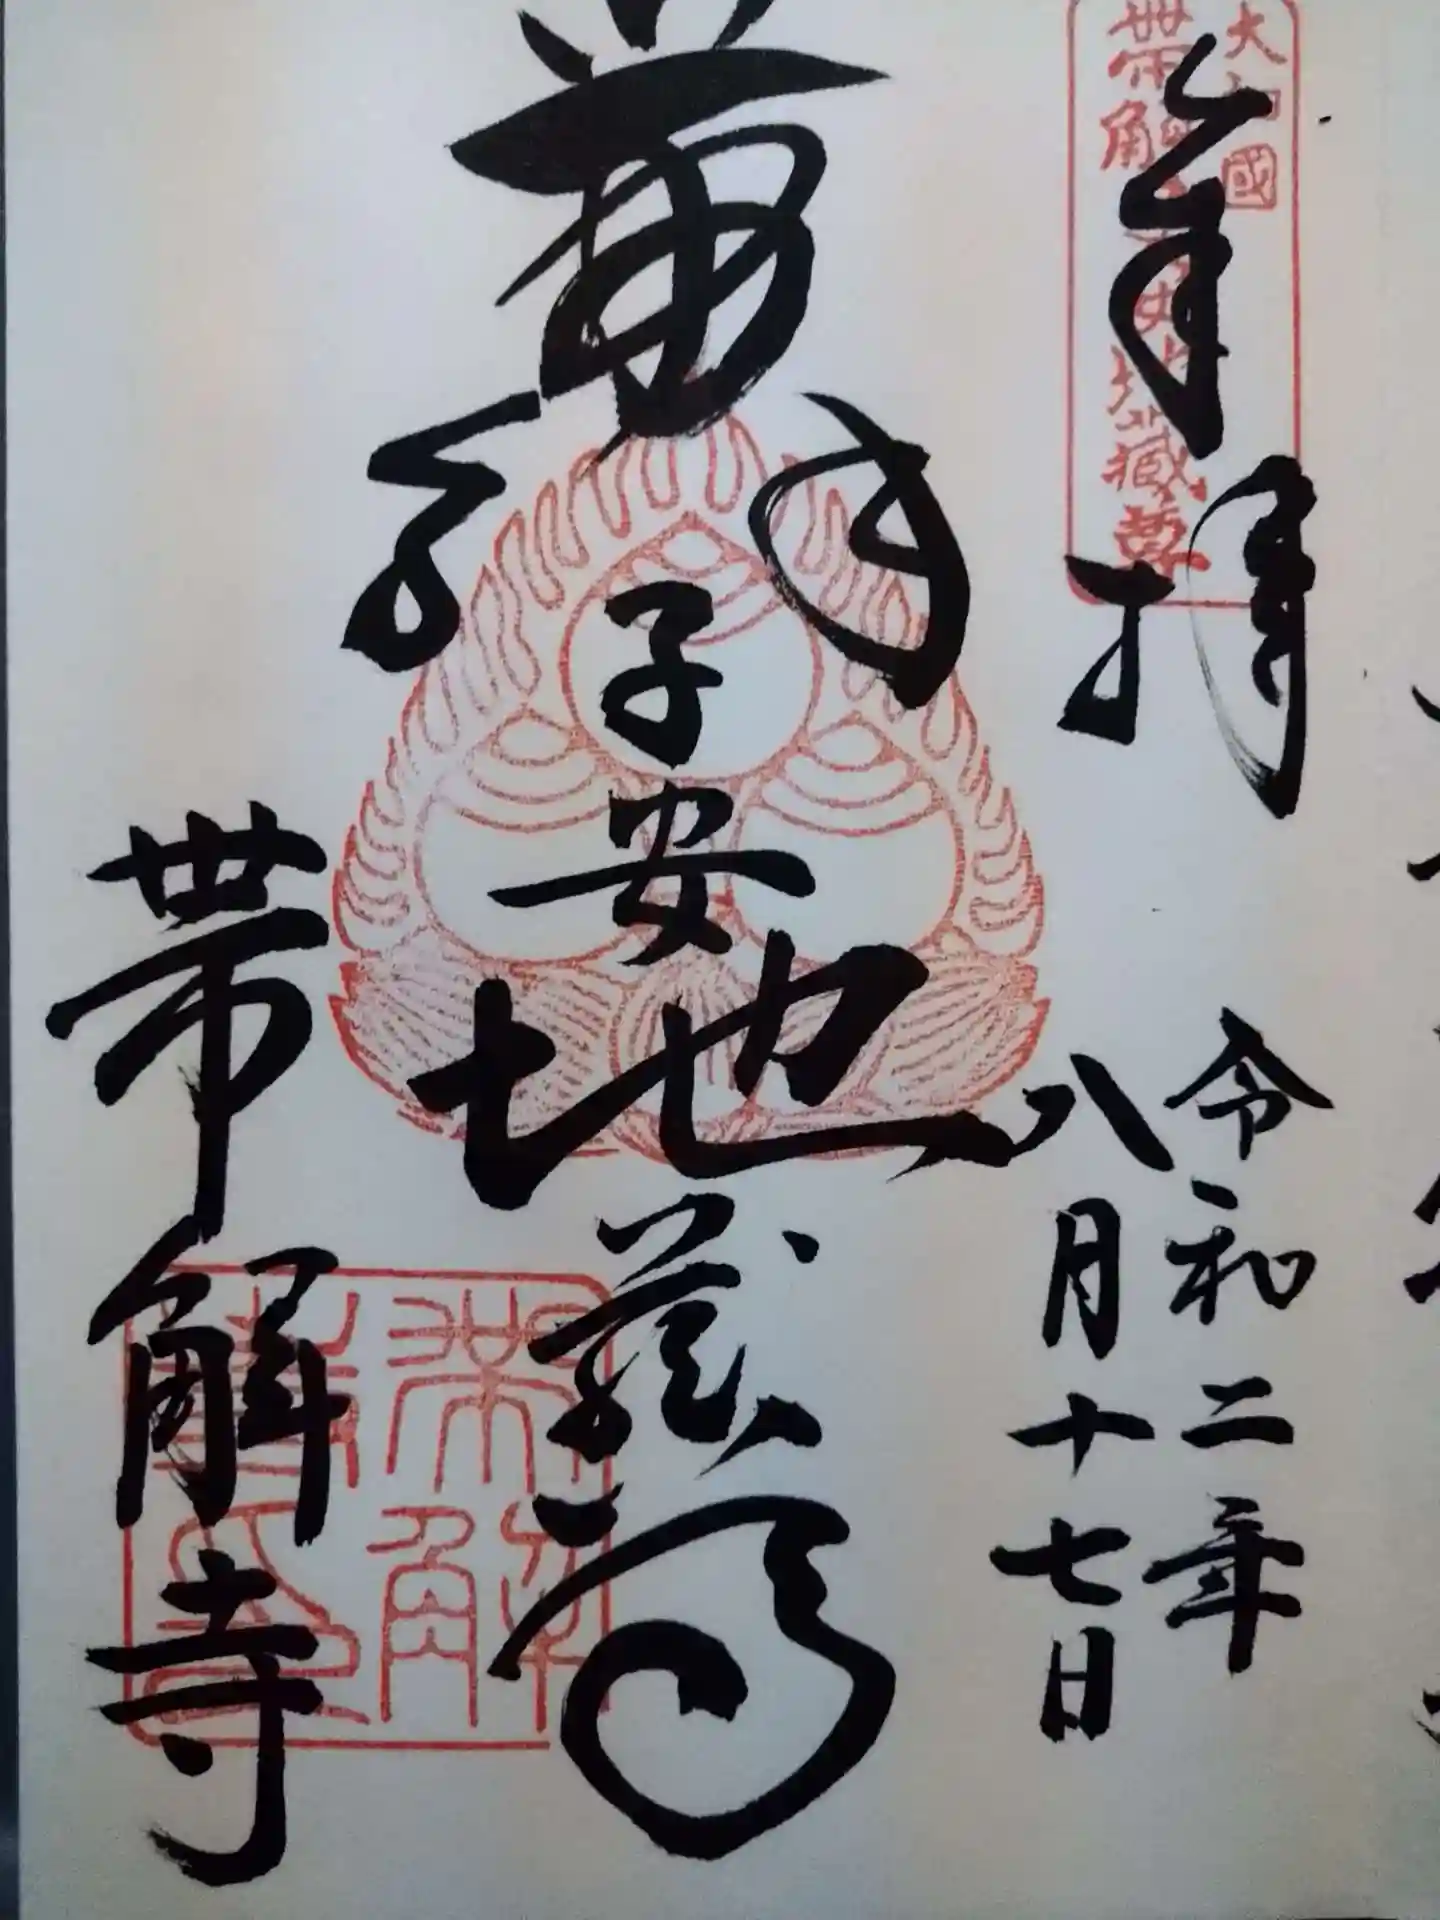 奉拝
大和國
帯解子安地藏尊
令和二年
八月十七日
子安地蔵尊
帯解寺
帯解寺印